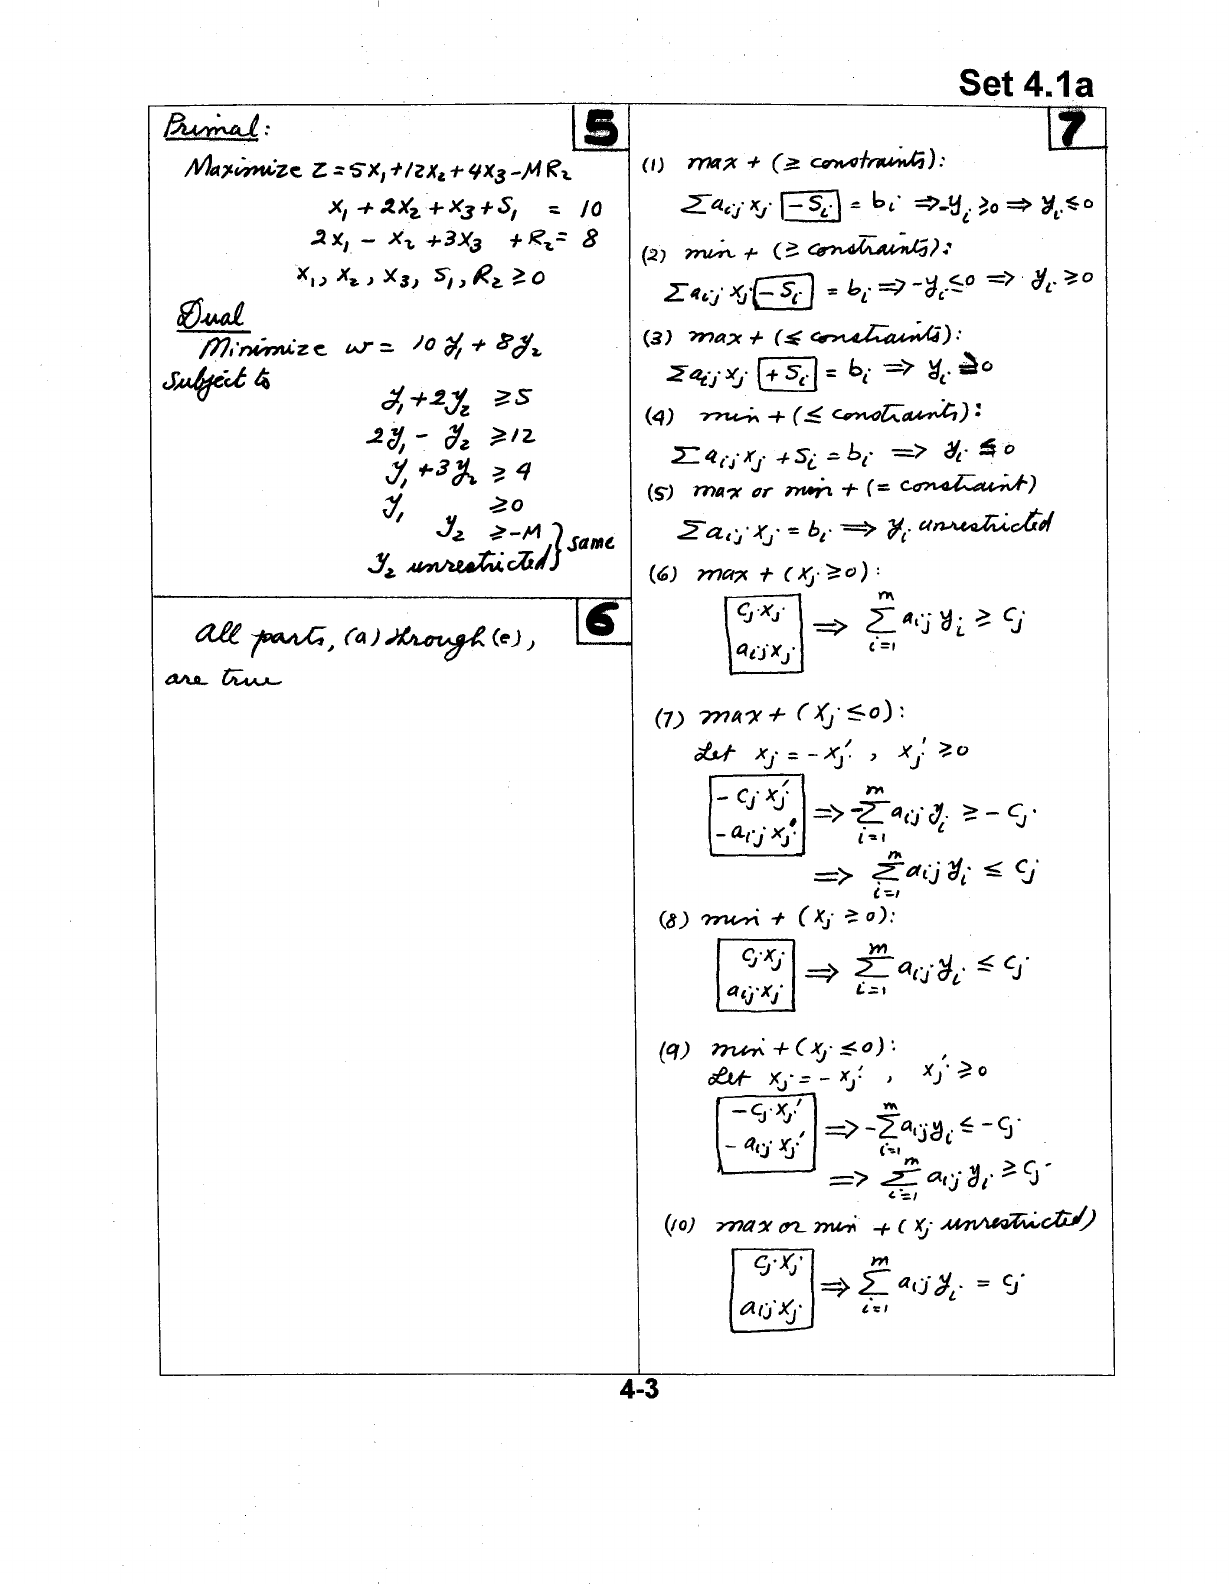 Set 4.1a
5
Primal:
Maximize Z = 5X₁ + 12X₂ + 4X₃ - MR₂
X₁ + 2X₂ + X₃ + S₁ = 10
2X₁ - X₂ + 3X₃ + R₂ = 8
X₁, X₂, X₃, S₁, R₂ ≥ 0
Dual
Minimize w = 10y₁ + 8y₂
Subject to
y₁ + 2y₂ ≥ 5
2y₁ - y₂ ≥ 12
y₁ + 3y₂ ≥ 4
y₁ ≥ 0
y₂ ≥ -M
y₂ unrestricted } same
6
All parts, (a) through (e),
are true
7
(1) max + (≥ constraints):
Σ aᵢⱼ xⱼ - Sᵢ = bᵢ ⇒ -yᵢ ≥ 0 ⇒ yᵢ ≤ 0
(2) min + (≥ constraints):
Σ aᵢⱼ xⱼ - Sᵢ = bᵢ ⇒ -yᵢ ≤ 0 ⇒ yᵢ ≥ 0
(3) max + (≤ constraints):
Σ aᵢⱼ xⱼ + Sᵢ = bᵢ ⇒ yᵢ ≥ 0
(4) min + (≤ constraints):
Σ aᵢⱼ xⱼ + Sᵢ = bᵢ ⇒ yᵢ ≤ 0
(5) max or min + (= constraint)
Σ aᵢⱼ xⱼ = bᵢ ⇒ yᵢ unrestricted
(6) max + (xⱼ ≥ 0):
cⱼ xⱼ
aᵢⱼ xⱼ ⇒ Σᵢ₌₁ᵐ aᵢⱼ yᵢ ≥ cⱼ
(7) max + (xⱼ ≤ 0):
Let xⱼ = -xⱼ', xⱼ' ≥ 0
-cⱼ xⱼ'
-aᵢⱼ xⱼ' ⇒ -Σᵢ₌₁ᵐ aᵢⱼ yᵢ ≥ -cⱼ
⇒ Σᵢ₌₁ᵐ aᵢⱼ yᵢ ≤ cⱼ
(8) min + (xⱼ ≥ 0):
cⱼ xⱼ
aᵢⱼ xⱼ ⇒ Σᵢ₌₁ᵐ aᵢⱼ yᵢ ≤ cⱼ
(9) min + (xⱼ ≤ 0):
Let xⱼ = -xⱼ', xⱼ' ≥ 0
-cⱼ xⱼ'
-aᵢⱼ xⱼ' ⇒ -Σᵢ₌₁ᵐ aᵢⱼ yᵢ ≤ -cⱼ
⇒ Σᵢ₌₁ᵐ aᵢⱼ yᵢ ≥ cⱼ
(10) max or min + (xⱼ unrestricted)
cⱼ xⱼ
aᵢⱼ xⱼ ⇒ Σᵢ₌₁ᵐ aᵢⱼ yᵢ = cⱼ
4-3